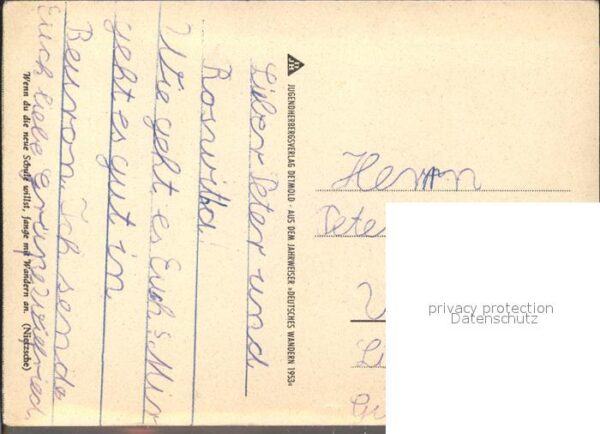 Lieber Peter und
Roswitha!
Wie geht es Euch? Mir
geht es gut in
Beuron. Ich sende
Euch liebe Grüße
Wenn du die neue Schule willst, fange mit Wandern an. (Nietzsche)
JUGENDHERBERGSVERLAG DETMOLD · AUS DEM JAHRWEISER »DEUTSCHES WANDERN 1953«
Herrn
Pete
privacy protection
Datenschutz